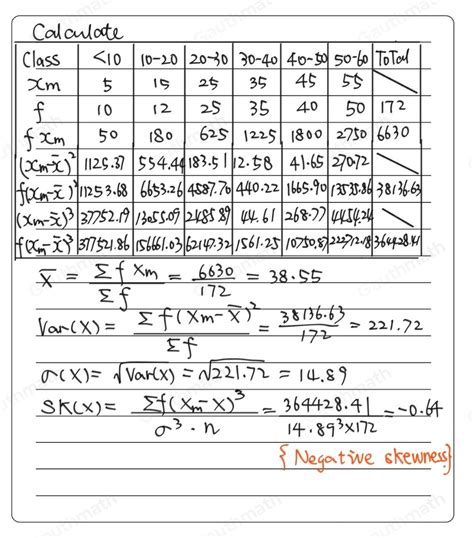 Calculate
Class <10 10-20 20-30 30-40 40-50 50-60 ToTal
xm 5 15 25 35 45 55
f 10 12 25 35 40 50 172
f xm 50 180 625 1225 1800 2750 6630
(xm-x̄)² 1125.37 554.44 183.51 12.58 41.65 270.72
f(xm-x̄)² 11253.68 6653.26 4587.70 440.22 1665.90 13535.86 38136.63
(xm-x̄)³ 37752.19 13055.09 2485.89 44.61 268.77 4454.24
f(xm-x̄)³ 377521.86 156661.03 62147.32 1561.25 10750.87 222712.18 364428.41
x̄ = Σf xm / Σf = 6630 / 172 = 38.55
Var(X) = Σf(xm-x̄)² / Σf = 38136.63 / 172 = 221.72
σ(X) = √Var(X) = √221.72 = 14.89
SK(X) = Σf(xm-x̄)³ / σ³·n = 364428.41 / 14.89³×172 = -0.64
{Negative skewness}